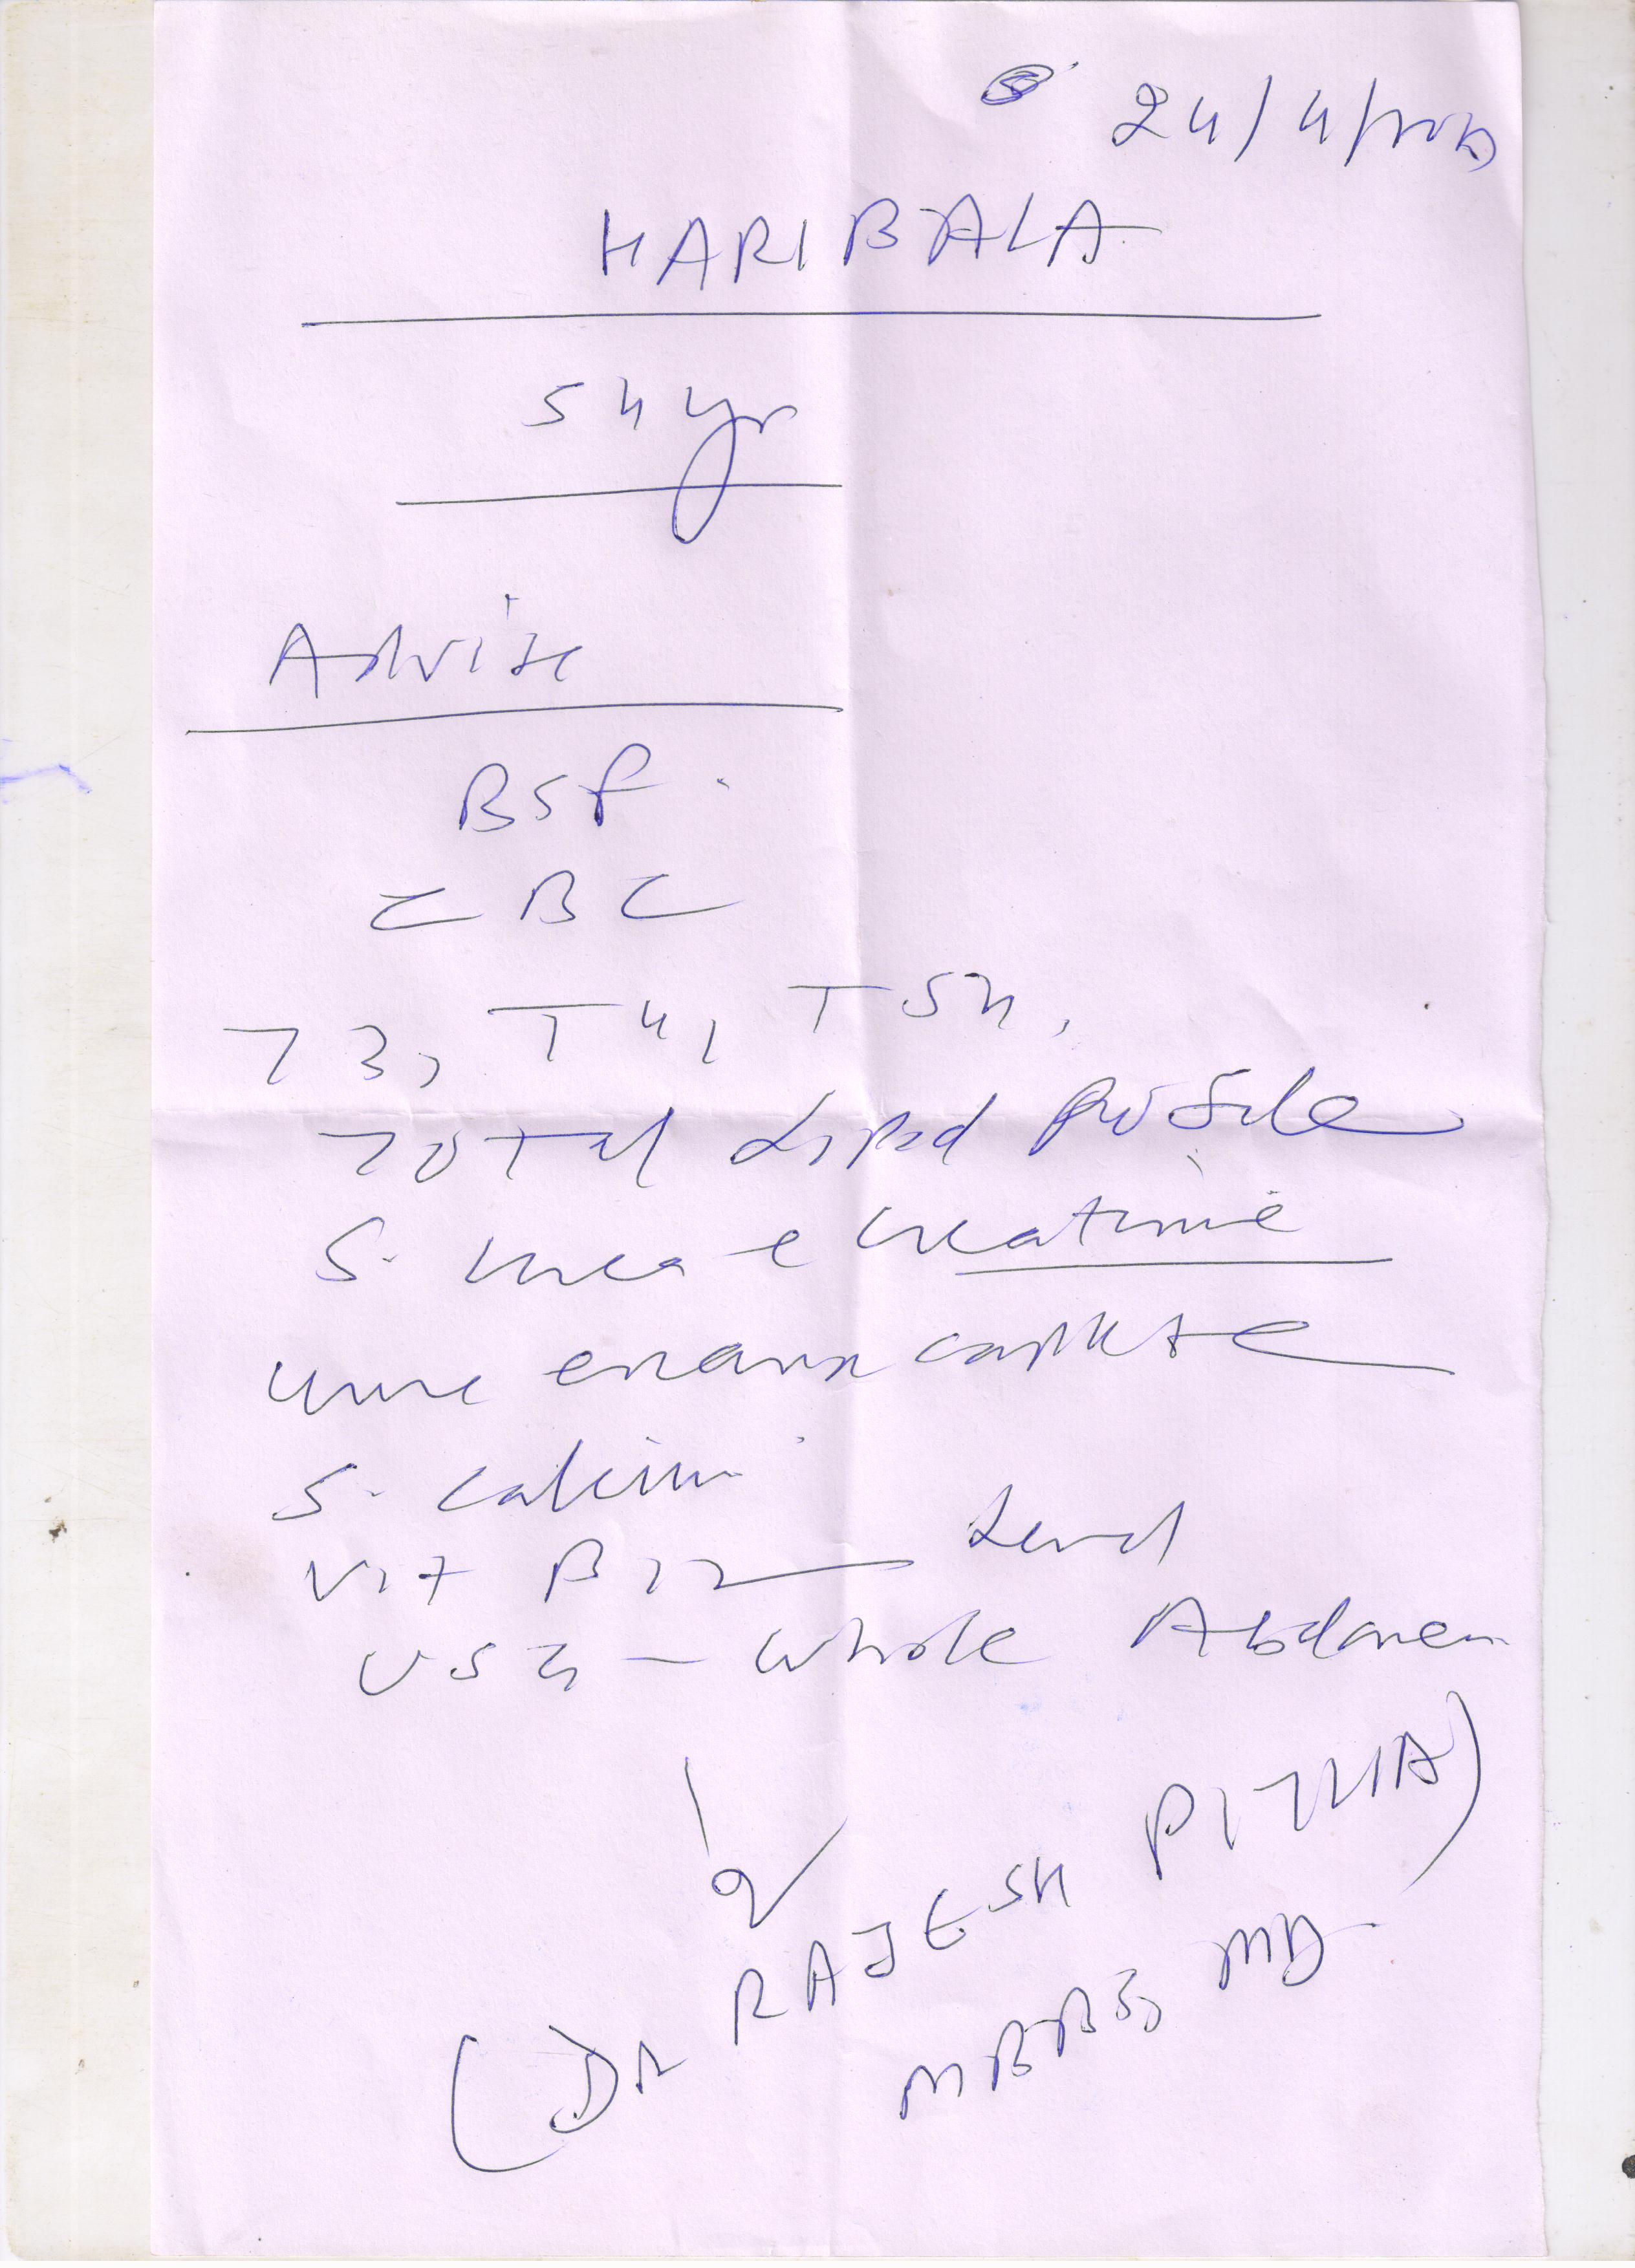 24/4/
HARIBALA
54 yr
Advise
BSF
CBC
T3, T4, TSH,
Total Lipid Profile
S. Urea e Creatinine
Urine exam complete
S. Calcium
Vit B12 Level
USG - Whole Abdomen
(DR RAJESH
MBBS, MD